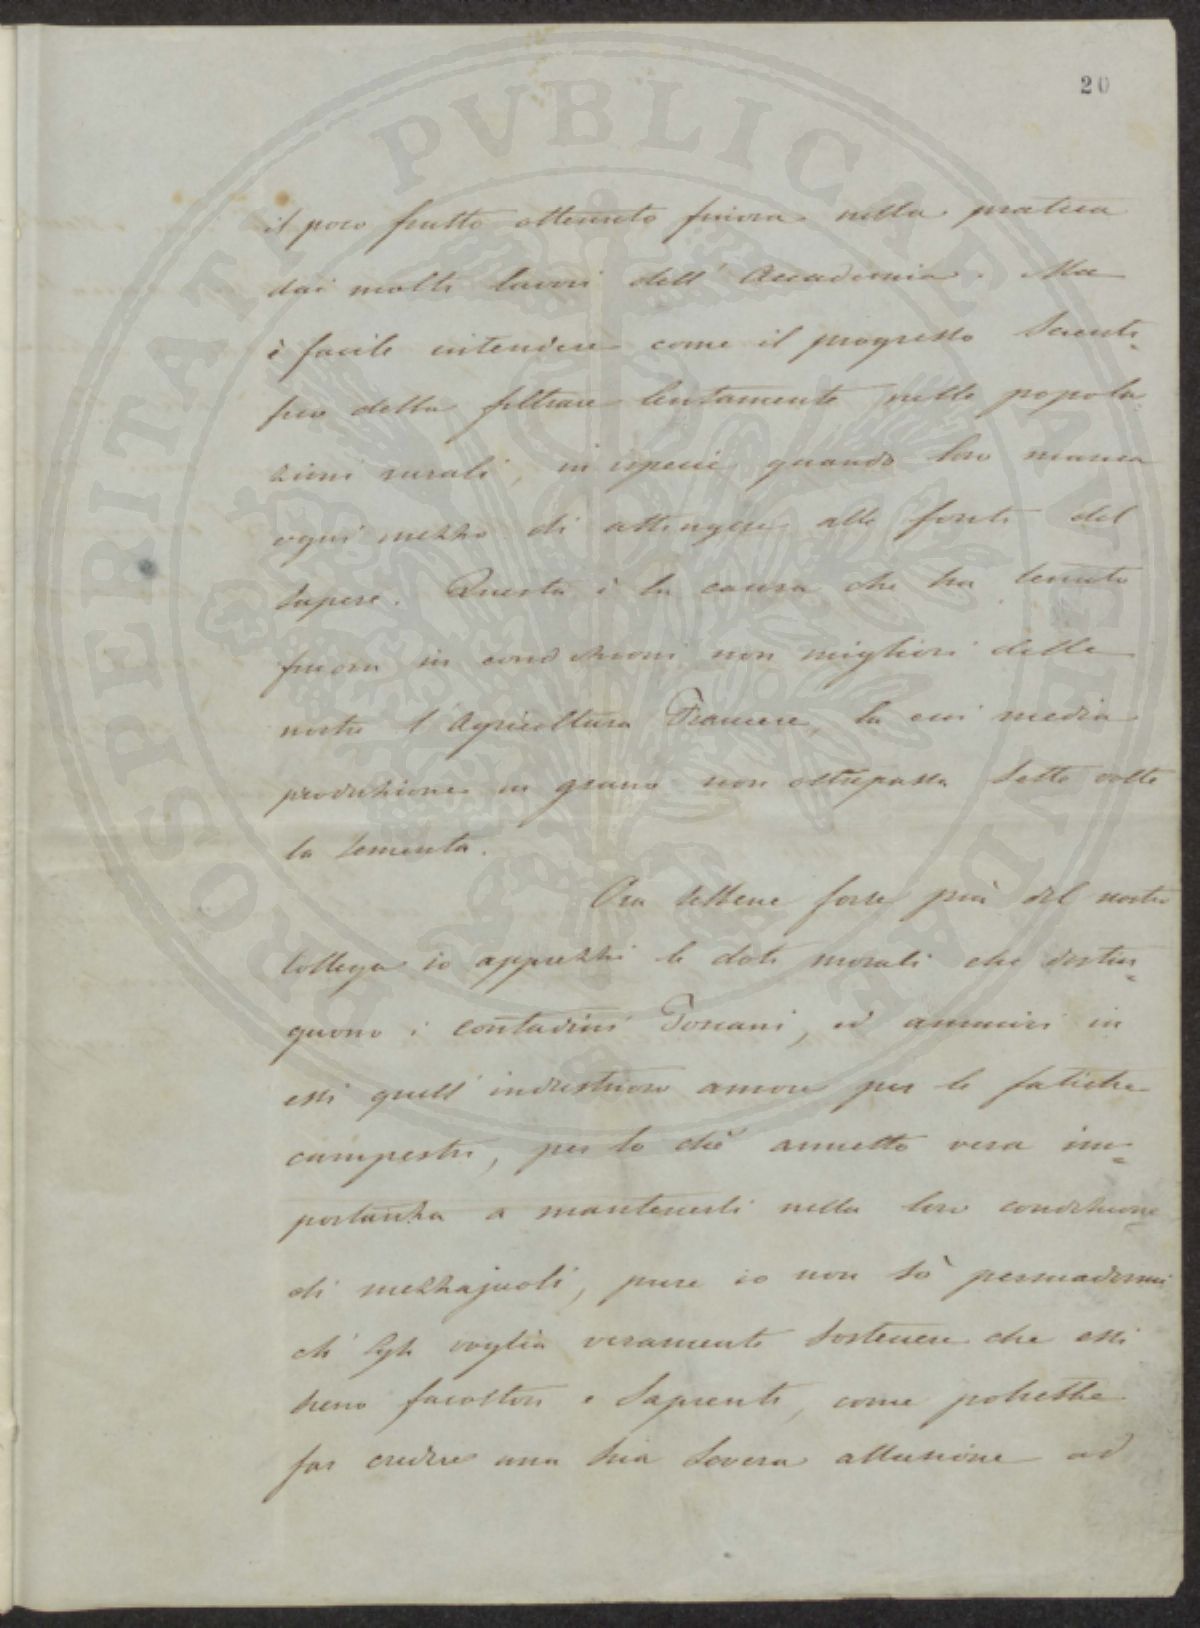 20
il poco frutto ottenuto finora nella pratica
dai molti lavori dell' Accademia. Ma
è facile intendere come il progresso Scienti=
fico debba filtrare lentamente nelle popola
zioni rurali, in specie quando loro manca
ogni mezzo di attingere alle fonti del
Sapere. Questa è la causa che ha tenuto
finora in condizioni non migliori delle
nostre l'Agricoltura Francese, la cui media
produzione in grano non oltrepassa Sette volte
la Sementa.
Ora Sebbene forse più del nostro
Collega io apprezzi le doti morali che distin=
guono i contadini Toscani, ed ammiri in
essi quell' industrioso amore per le fatiche
campestri, per lo chè annetto vera im=
portanza a mantenerli nella loro condizione
di mezzajuoli, pure io non sò persuadermi
ch' Egli voglia veramente Sostenere che essi
sieno facoltosi e Sapienti, come potrebbe
far credere una Sua Severa allusione ad
PROSPERITATI PVBLICAE AVGENDAE